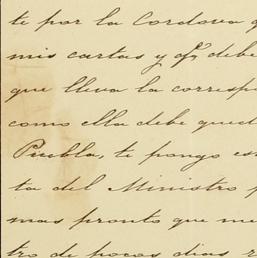 te por la Cordova
mis cartas y qe debe
que lleva la corresp
como ella debe qued
Puebla, te pongo es
ta del Ministro p
mas pronto que me
tro de pocos dias r